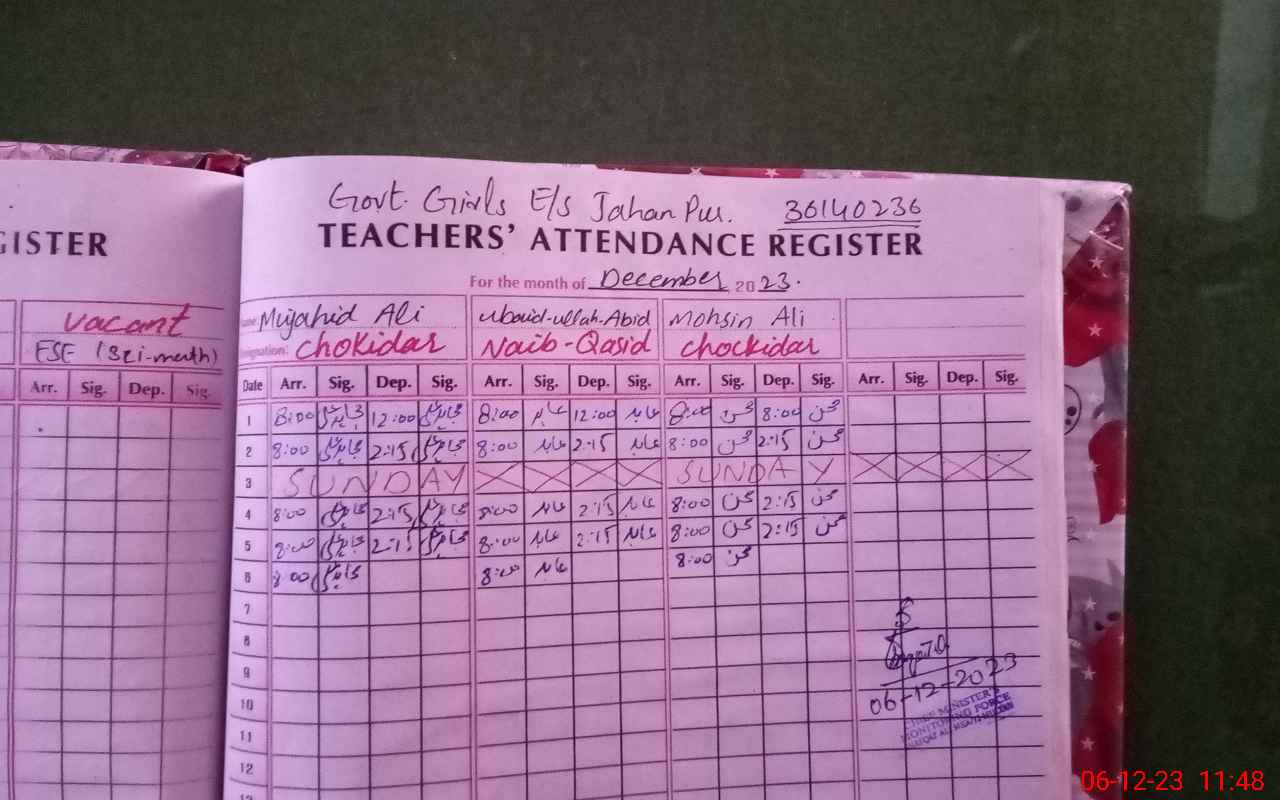 GISTER
vacant
ESE (Sci-math)
Arr. Sig. Dep. Sig.
Govt. Girls E/s Jahan Pur. 36140236
TEACHERS' ATTENDANCE REGISTER
For the month of December 2023.
Mujahid Ali Ubaid-ullah-Abid Mohsin Ali
Designation: Chokidar Naib-Qasid Chockidar
Date Arr. Sig. Dep. Sig. Arr. Sig. Dep. Sig. Arr. Sig. Dep. Sig. Arr. Sig. Dep. Sig.
1 8:00 12:00 8:00 عابد 12:00 عابد 8:00 محسن 8:00 محسن
2 8:00 2:15 8:00 عابد 2:15 عابد 8:00 محسن 2:15 محسن
3 SUNDAY SUNDAY
4 8:00 2:15 8:00 عابد 2:15 عابد 8:00 محسن 2:15 محسن
5 8:00 2:15 8:00 عابد 2:15 عابد 8:00 محسن 2:15 محسن
6 8:00 8:00 عابد 8:00 محسن
7
8
9
10
11
12
06-12-2023
CHIEF MINISTER'S
MONITORING FORCE
06-12-23 11:48